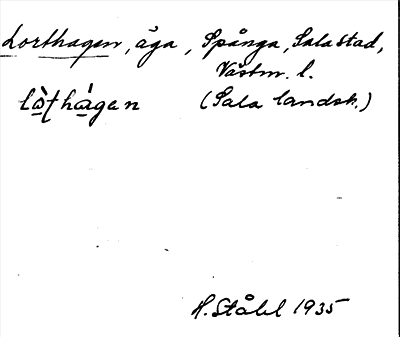 Lorthagen, äga, Spånga, Sala stad,
Västm. l.
lò̲ṭhá̲gen (Sala landsk.)
H. Ståhl 1935